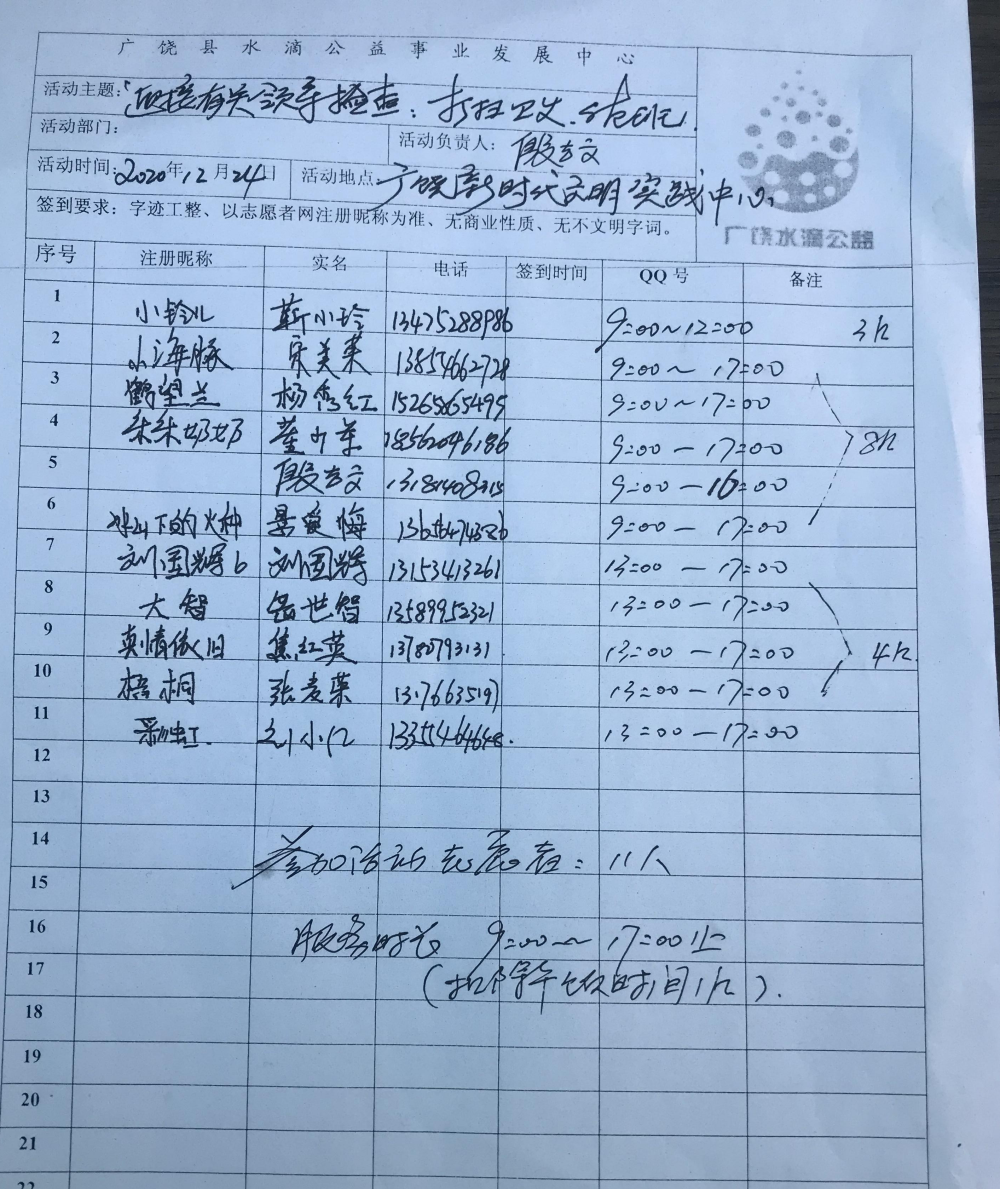 广饶县水滴公益事业发展中心
活动主题: 迎接有关领导检查: 打扫卫生、值班.
活动部门: 活动负责人: 殷立文
活动时间: 2020年12月24日 活动地点: 广饶新时代文明实践中心
签到要求: 字迹工整、以志愿者网注册昵称为准、无商业性质、无不文明字词。
广饶水滴公益
序号 注册昵称 实名 电话 签到时间 QQ号 备注
1 小铃儿 靳小玲 13475288986 9:00~12:00 3h
2 小海豚 宋美荣 13854662728 9:00~17:00
3 鹤望兰 杨秀红 15265865495 9:00~17:00
4 朵朵奶奶 18562046186 9:00-17:00 8h
5 殷立文 13181408315 9:00-16:00
6 冰山下的火种 景爱梅 9:00-17:00
7 刘国辉6 刘国辉 13153413261 13:00-17:00
8 大智 岳世智 13589952321 13:00-17:00
9 真情依旧 焦红英 13780793131 13:00-17:00 4h
10 梧桐 张麦荣 1317663519 13:00-17:00
11 彩虹. 刘小红 13355464648. 13:00-17:00
12
13
14 参加活动志愿者: 11人
15
16 服务时长 9:00~17:00止
17 (扣除午饭时间1h).
18
19
20
21
22